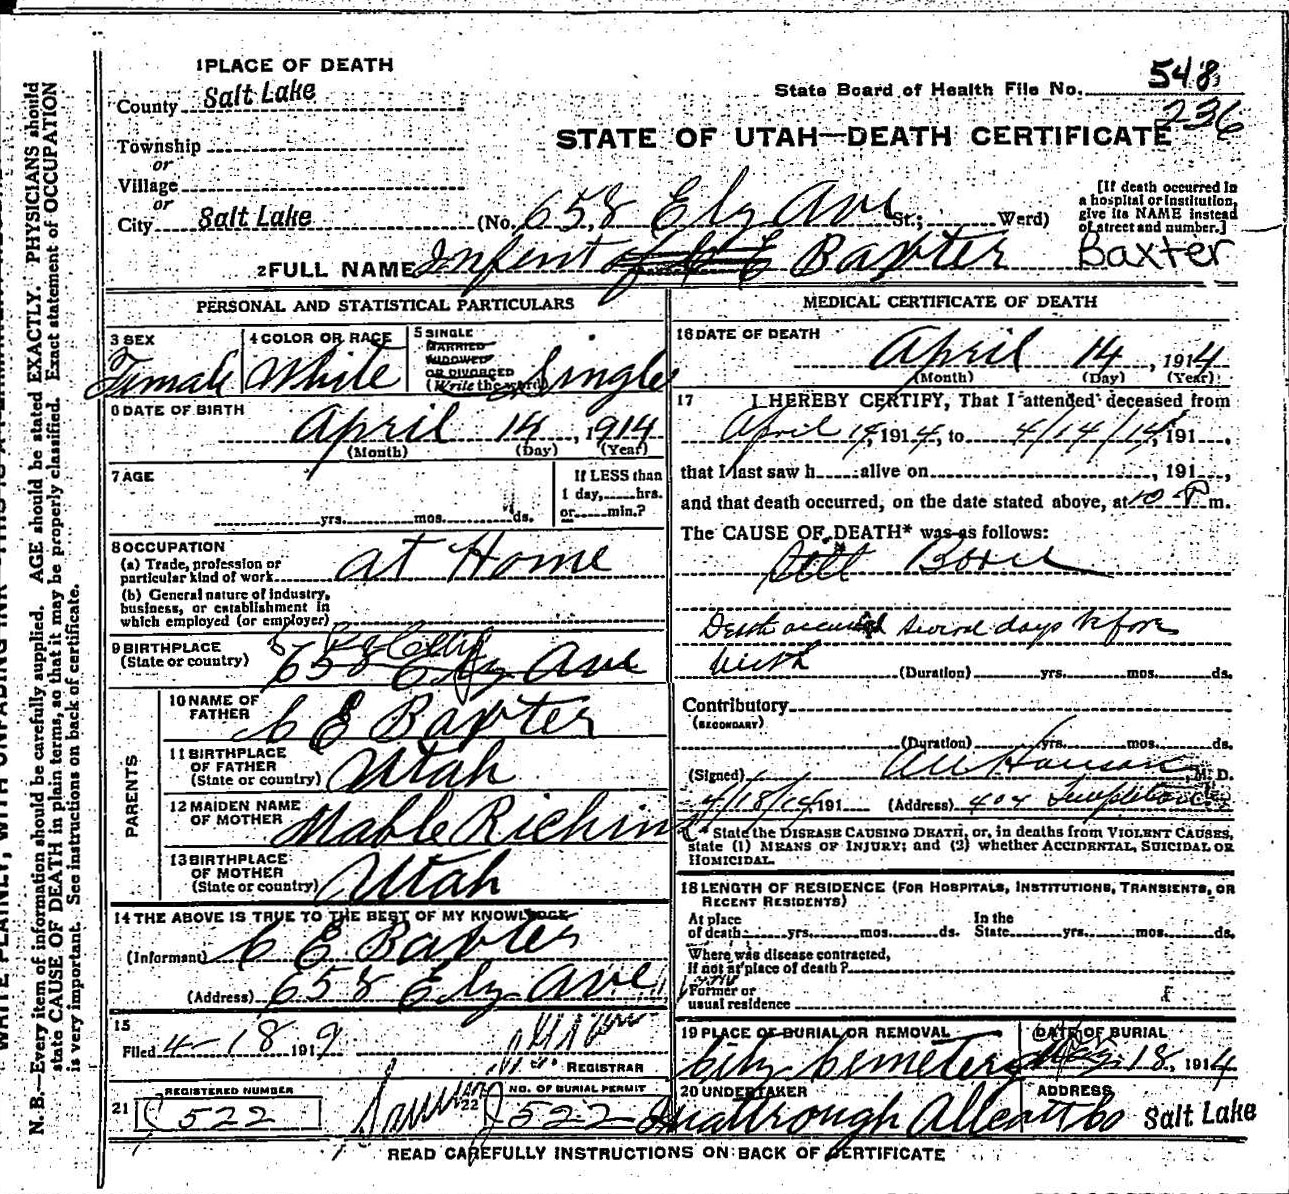 1 PLACE OF DEATH
County Salt Lake
State Board of Health File No. 548
236
STATE OF UTAH—DEATH CERTIFICATE
Township
or
Village
or
City Salt Lake (No. 658 Ely Ave St.; Werd)
[If death occurred in
a hospital or institution,
give its NAME instead
of street and number.]
2 FULL NAME Infent of C E Baxter Baxter
PERSONAL AND STATISTICAL PARTICULARS
3 SEX
Female
4 COLOR OR RACE
White
5 SINGLE
MARRIED
WIDOWED
OR DIVORCED
(Write the word) Single
6 DATE OF BIRTH
April 14, 1914
(Month) (Day) (Year)
7 AGE
If LESS than
1 day, hrs.
yrs. mos. ds. or min.?
8 OCCUPATION
(a) Trade, profession or
particular kind of work at Home
(b) General nature of industry,
business, or establishment in
which employed (or employer)
9 BIRTHPLACE
(State or country) 658 Ely Ave
PARENTS
10 NAME OF
FATHER C E Baxter
11 BIRTHPLACE
OF FATHER
(State or country) Utah
12 MAIDEN NAME
OF MOTHER Mable Richin
13 BIRTHPLACE
OF MOTHER
(State or country) Utah
14 THE ABOVE IS TRUE TO THE BEST OF MY KNOWLEDGE
(Informant) C E Baxter
(Address) 658 Ely Ave
15
Filed 4-18 1919
REGISTRAR
21
REGISTERED NUMBER
522
22
NO. OF BURIAL PERMIT
522
MEDICAL CERTIFICATE OF DEATH
16 DATE OF DEATH
April 14, 1914
(Month) (Day) (Year)
17 I HEREBY CERTIFY, That I attended deceased from
April 14, 1914, to 4/14/14, 191
that I last saw h alive on , 191 ,
and that death occurred, on the date stated above, at 10 P m.
The CAUSE OF DEATH* was as follows:
Still Born
Death occurred several days before
birth (Duration) yrs. mos. ds.
Contributory
(SECONDARY)
(Duration) yrs. mos. ds.
(Signed) Hanson, M. D.
4/18/14 191 (Address) 404 Templeton
* State the DISEASE CAUSING DEATH, or, in deaths from VIOLENT CAUSES,
state (1) MEANS OF INJURY; and (2) whether ACCIDENTAL, SUICIDAL OR
HOMICIDAL.
18 LENGTH OF RESIDENCE (FOR HOSPITALS, INSTITUTIONS, TRANSIENTS, OR
RECENT RESIDENTS)
At place
of death yrs. mos. ds.
In the
State yrs. mos. ds.
Where was disease contracted,
If not at place of death?
Former or
usual residence
19 PLACE OF BURIAL OR REMOVAL
City Cemetery
DATE OF BURIAL
18, 1914
20 UNDERTAKER
ADDRESS
Salt Lake
READ CAREFULLY INSTRUCTIONS ON BACK OF CERTIFICATE
N. B.—Every item of information should be carefully supplied. AGE should be stated EXACTLY. PHYSICIANS should
state CAUSE OF DEATH in plain terms, so that it may be properly classified. Exact statement of OCCUPATION
is very important. See instructions on back of certificate.